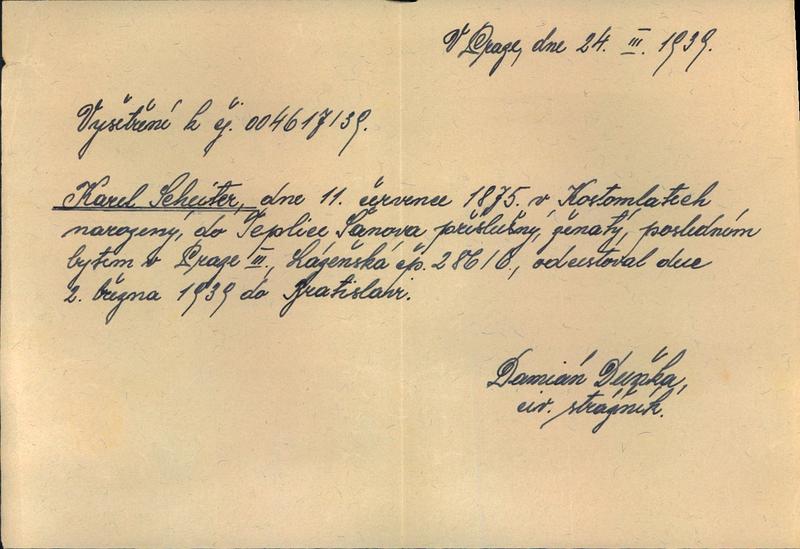 V Praze, dne 24. III. 1939.
Vyšetření k čj. 004617/39.
Karel Scheiter, dne 11. července 1875. v Kostomlatech
narozený, do Teplice Šanova příslušný, ženatý, posledním
bytem v Praze III., Lázeňská čp. 286/6., odcestoval dne
2. března 1939 do Bratislavi.
Damián
civ. strážník.